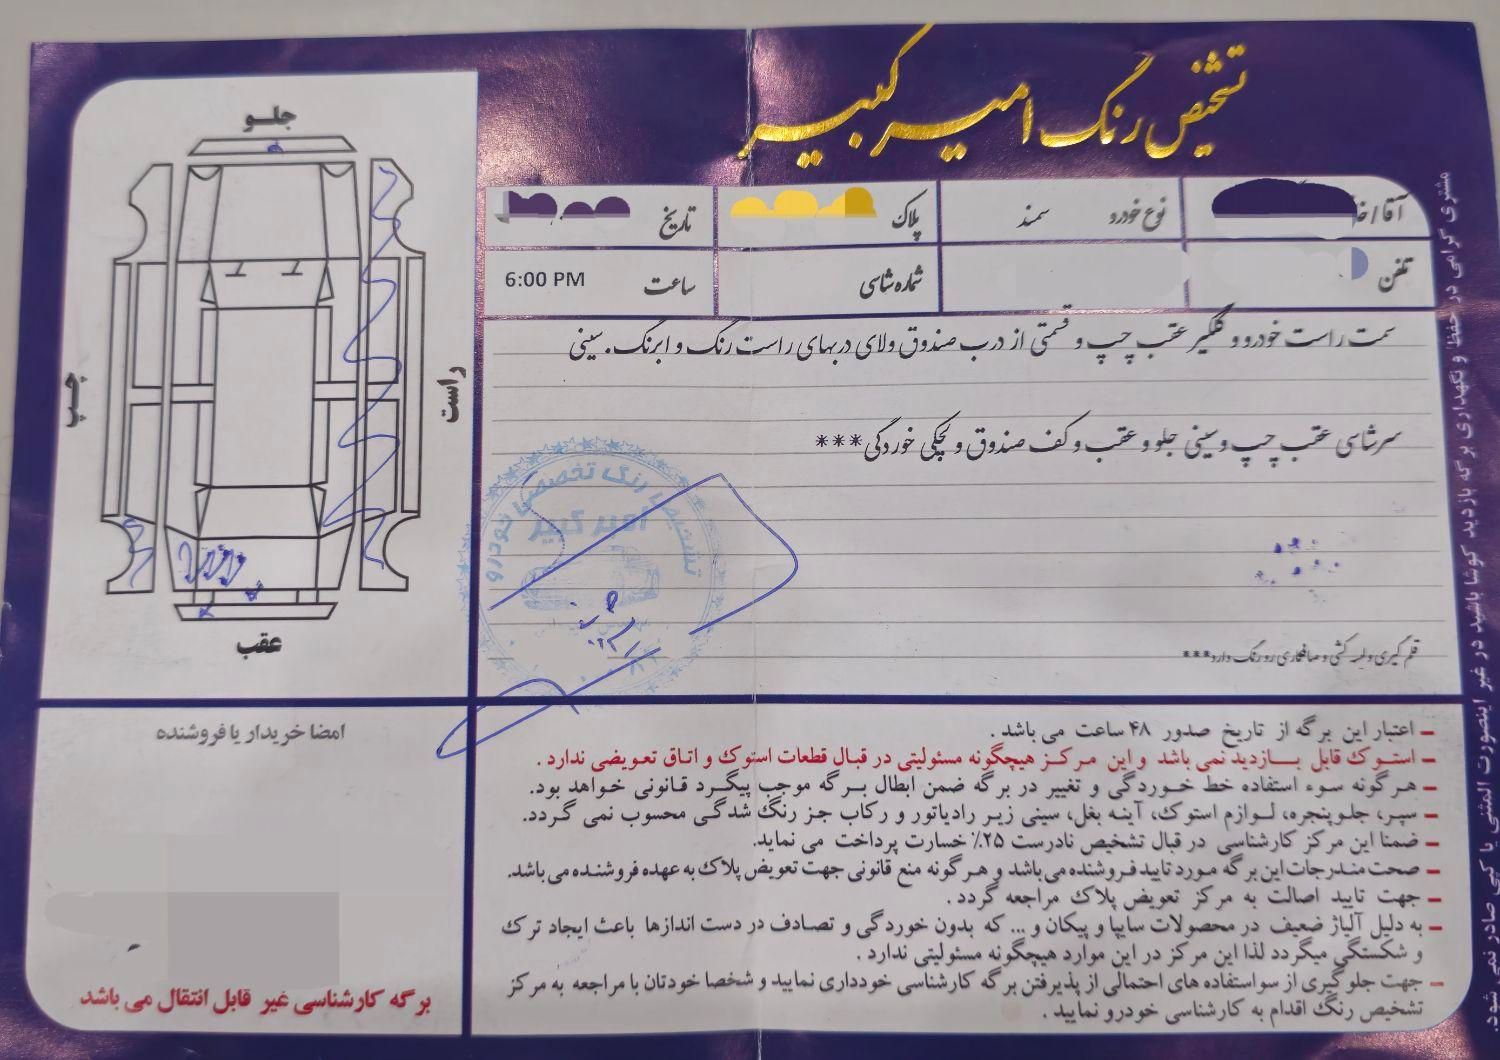 تشخیص رنگ امیرکبیر
آقا/خا
نوع خودرو
سمند
پلاک
تاریخ
تلفن
شماره شاسی
ساعت
6:00 PM
سمت راست خودرو و گلگیر عقب چپ و قسمتی از درب صندوق ولای دربهای راست رنگ و ابرنگ.سینی
سرشاسی عقب چپ و سینی جلو و عقب و کف صندوق و لچکی خوردگی***
قلم گیری و لیسه کشی و صافکاری رو رنگ دارد***
جلـو
چپ
راست
عقب
تشخیص رنگ تخصصی خودرو
امیر کبیر
امضا خریدار یا فروشنده
برگه کارشناسی غیر قابل انتقال می باشد
– اعتبار این برگه از تاریخ صدور ۴۸ ساعت می باشد .
– استوک قابل بازدید نمی باشد و این مرکز هیچگونه مسئولیتی در قبال قطعات استوک و اتاق تعویضی ندارد .
– هرگونه سوء استفاده خط خوردگی و تغییر در برگه ضمن ابطال برگه موجب پیگرد قانونی خواهد بود.
– سپر، جلوپنجره، لوازم استوک، آینه بغل، سینی زیر رادیاتور و رکاب جز رنگ شدگی محسوب نمی گردد.
– ضمنا این مرکز کارشناسی در قبال تشخیص نادرست ۲۵٪ خسارت پرداخت می نماید.
– صحت مندرجات این برگه مورد تایید فروشنده می باشد و هرگونه منع قانونی جهت تعویض پلاک به عهده فروشنده می باشد.
– جهت تایید اصالت به مرکز تعویض پلاک مراجعه گردد .
– به دلیل آلیاژ ضعیف در محصولات سایپا و پیکان و ... که بدون خوردگی و تصادف در دست اندازها باعث ایجاد ترک
و شکستگی میگردد لذا این مرکز در این موارد هیچگونه مسئولیتی ندارد .
– جهت جلوگیری از سواستفاده های احتمالی از پذیرفتن برگه کارشناسی خودداری نمایید و شخصا خودتان با مراجعه به مرکز
تشخیص رنگ اقدام به کارشناسی خودرو نمایید .
مشتری گرامی در حفظ و نگهداری برگه بازدید کوشا باشید در غیر اینصورت المثنی یا کپی صادر نمی شود.